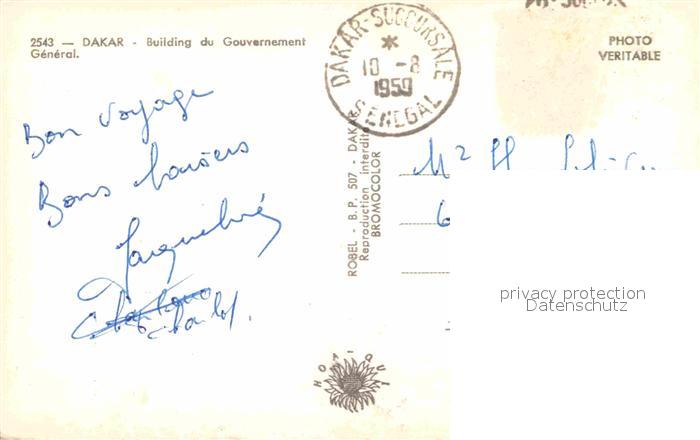 2543 — DAKAR - Building du Gouvernement
Général.
DAKAR-SUCCURSALE
*
10 -8
1959
SENEGAL
PHOTO
VERITABLE
Bon voyage
Bons baisers
ROBEL - B.P. 507 - DAKAR
Reproduction interdite
BROMOCOLOR
privacy protection
Datenschutz
HOA-QUI